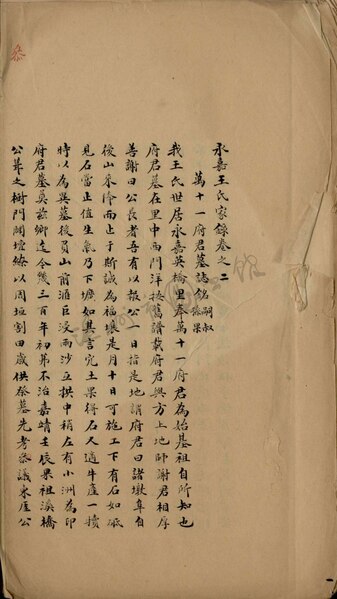 永嘉王氏家錄卷之二
萬十一府君墓誌銘
嗣叔
我王氏世居永嘉英橋里奉萬十一府君為始基祖自所知也
府君墓在里中西門洋按舊譜載府君與方上地師謝君相厚
善謝曰公長者吾有以報公一日指是地謂府君曰諸墩阜自
後山來降而止于斯誠為福壤是月十日可施工下有石如砥
見石當止值生氣乃下壙如其言究土果得石人過牛產一犢
特以為異墓後員山前滙巨浸兩沙互拱中稍左有小洲為印
府君墓英茲鄉迄今幾三百年初茀不治嘉靖壬辰果祖溪橋
公葬之樹門闕壇繚以周垣割田歲供祭墓先考叅議東厓公